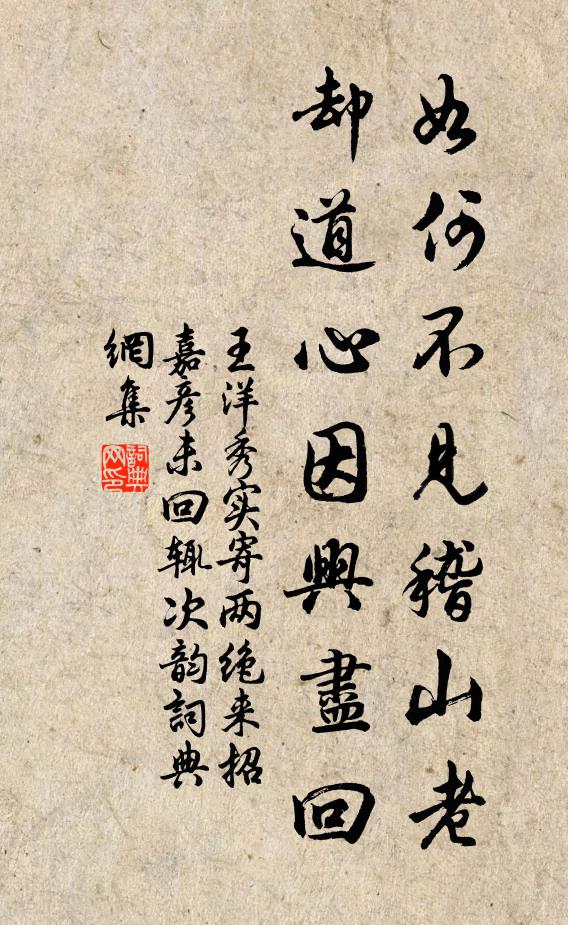 如何不見稽山老
却道心因興盡回
王洋秀实寄两绝来招
嘉彦未回辄次韵詞典
網集
詞典网印